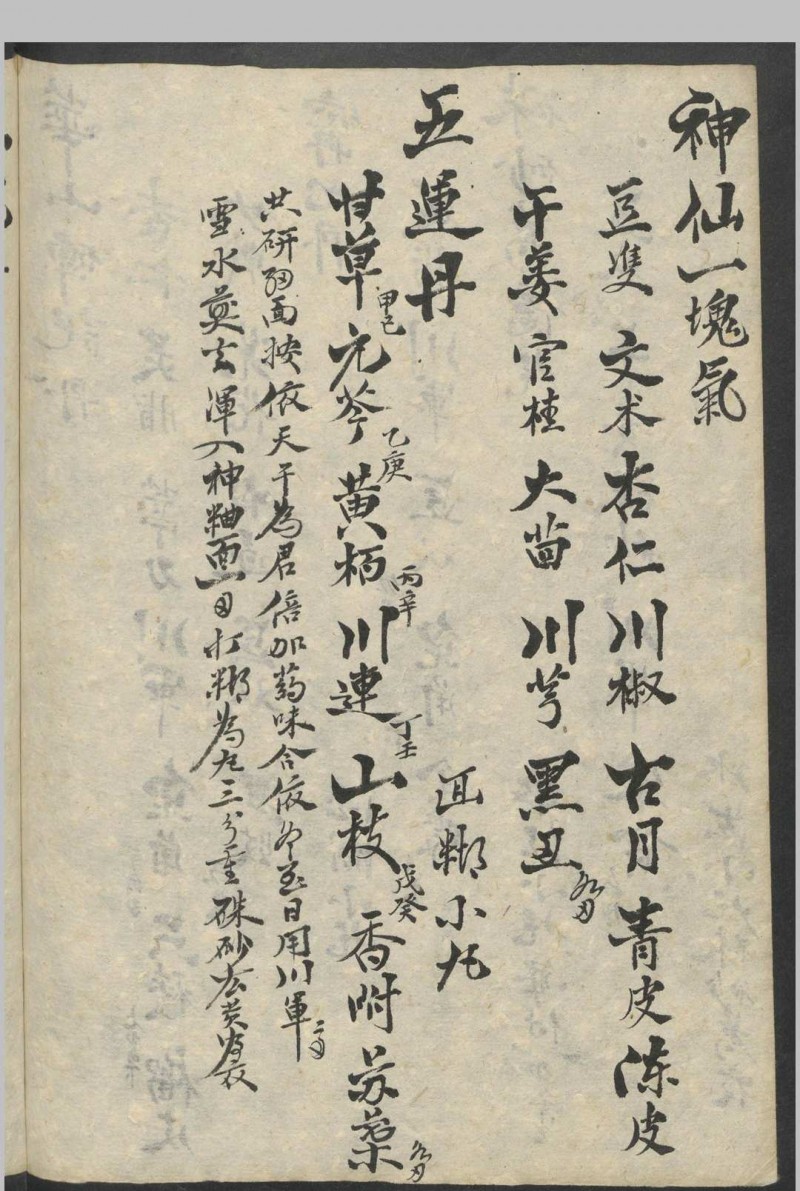 神仙一塊氣
豆隻 文术 杏仁 川椒 古月 青皮 陈皮
干姜 官桂 大茴 川芎 黑丑
面糊小丸
五運丹
甘草 甲己 元芩 乙庚 黄柏 丙辛 川連 丁壬 山枝 戊癸 香附 苏葉
共研細面按依天干為君倍加药味合依冬至日用川軍
雪水熬去渾入神粬面打糊為丸三分重硃砂玄黄為衣